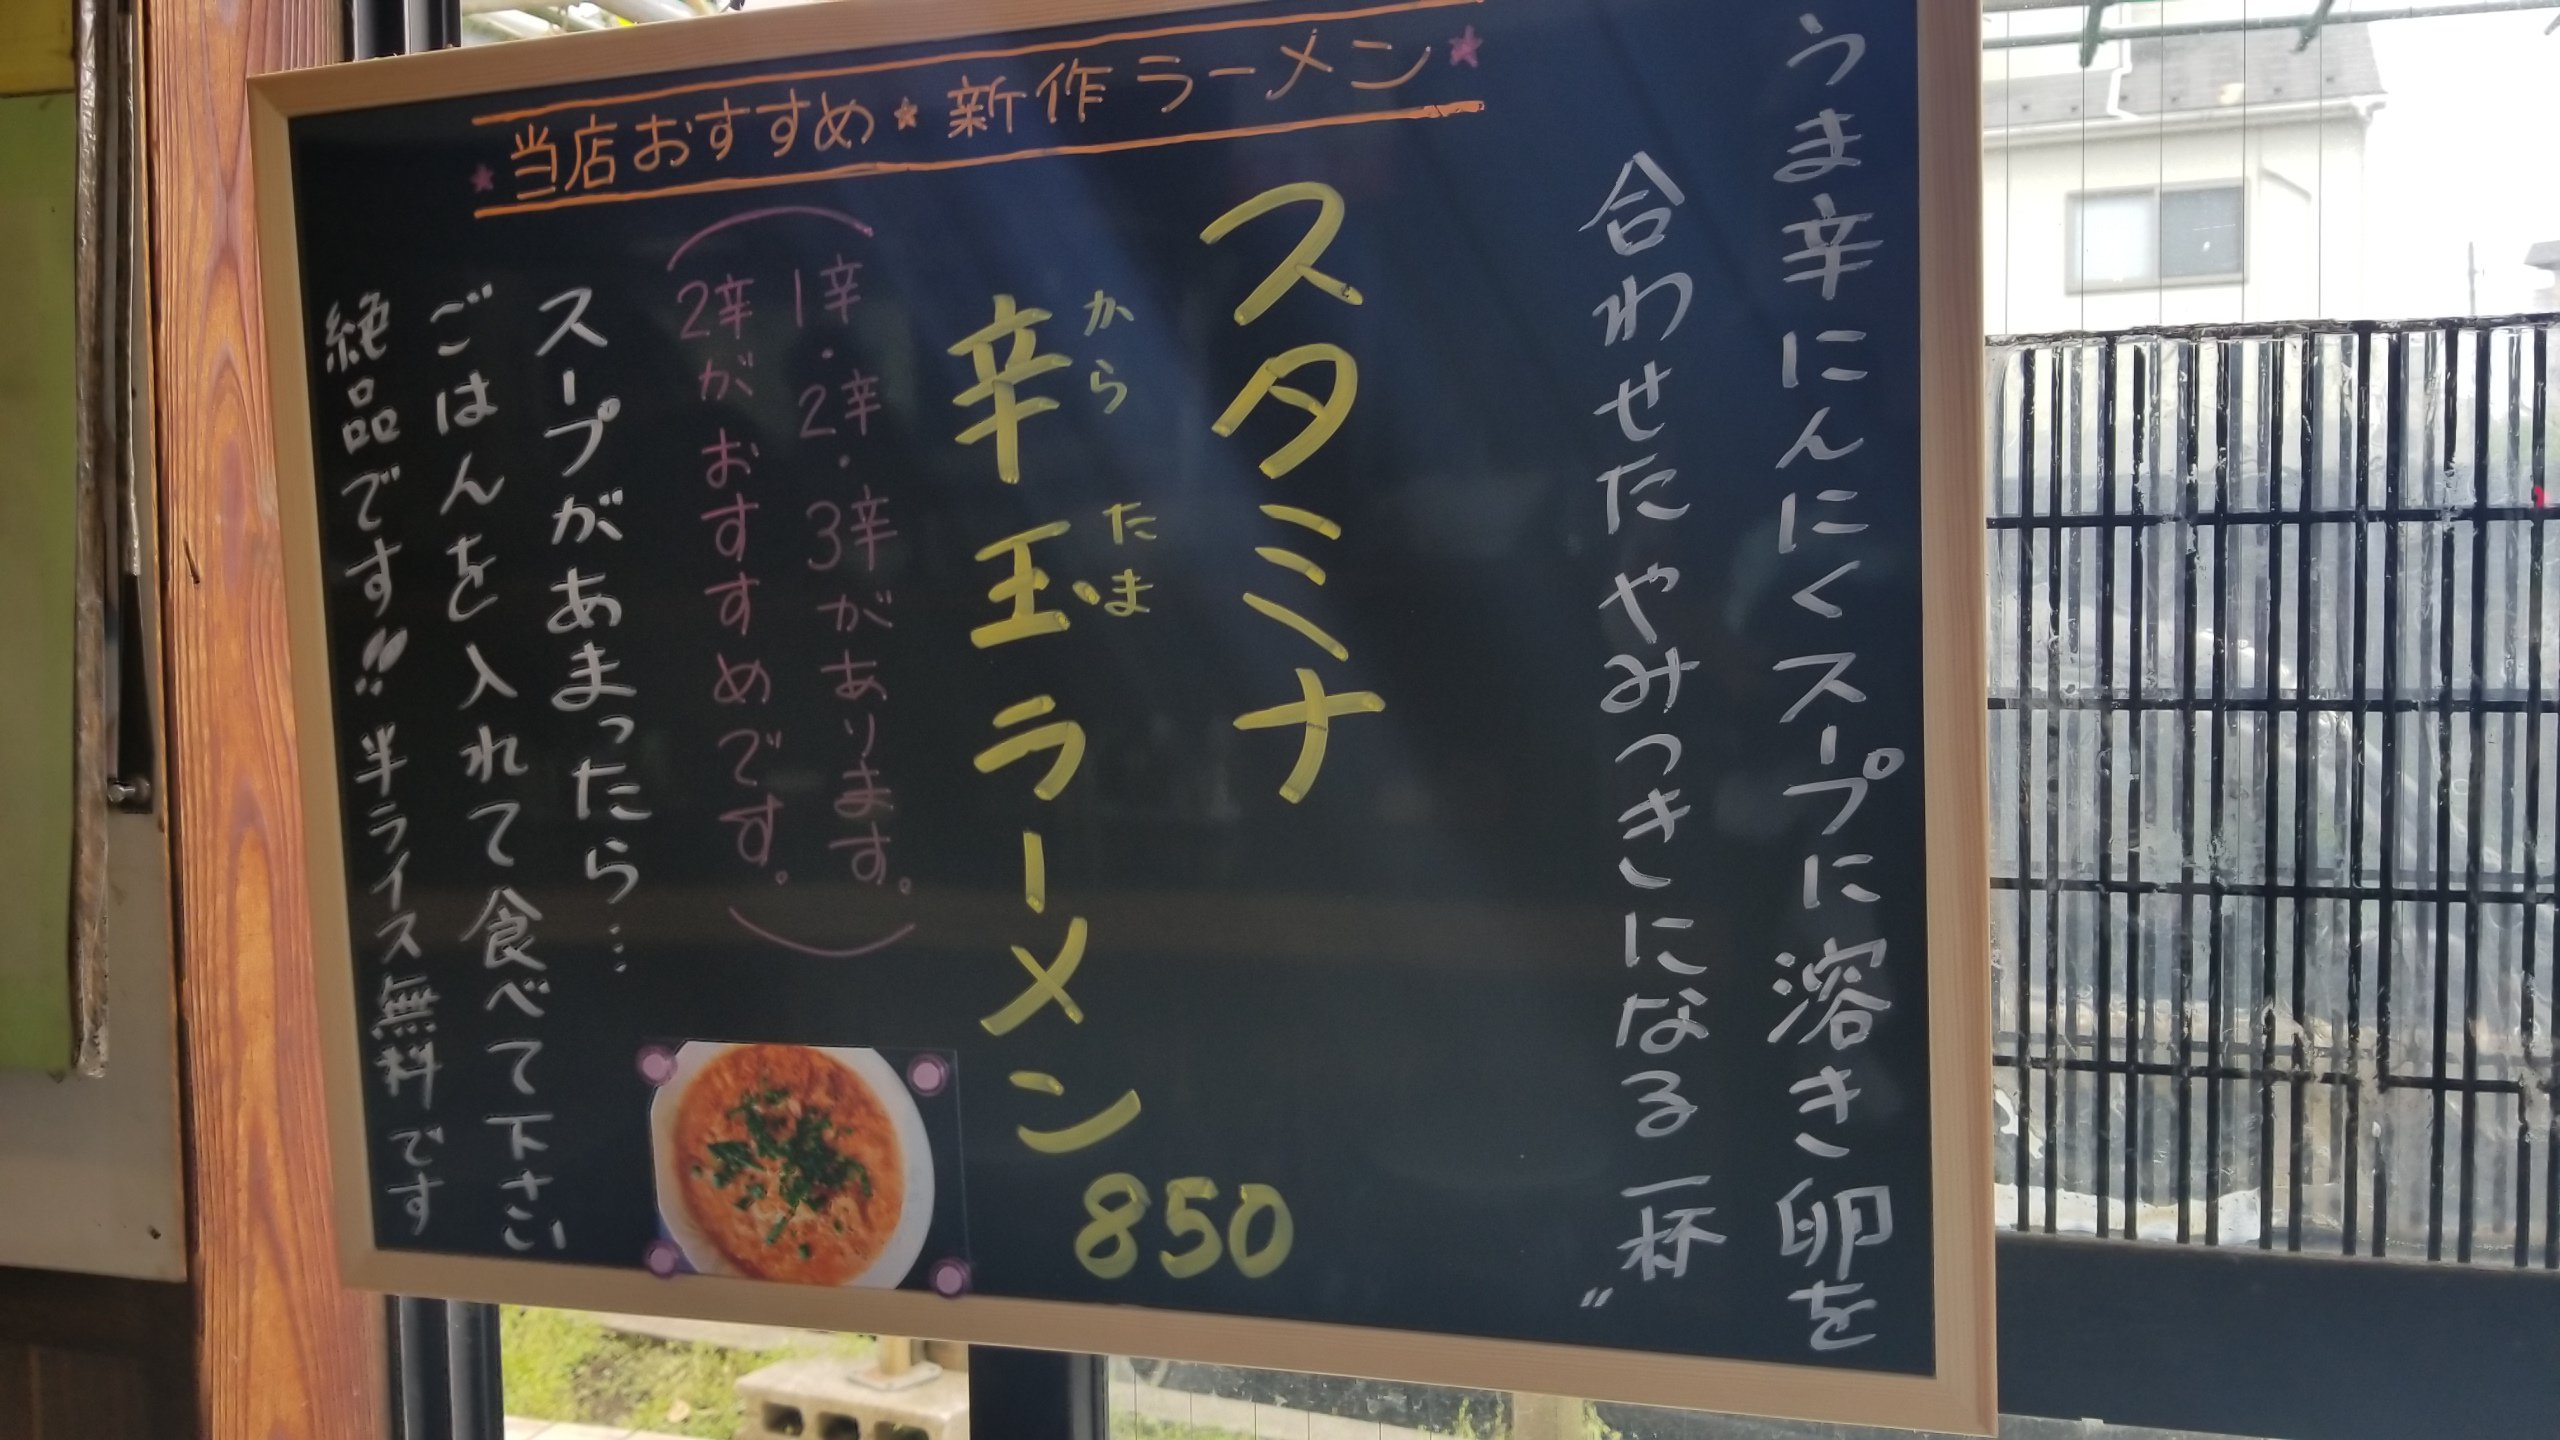 ★当店おすすめ★新作ラーメン★
うま辛にんにくスープに溶き卵を
合わせたやみつきになる一杯〃
スタミナ
から たま
辛玉ラーメン
850
(1辛・2辛・3辛があります。
2辛がおすすめです。)
スープがあまったら…
ごはんを入れて食べて下さい
絶品です!! 半ライス無料です